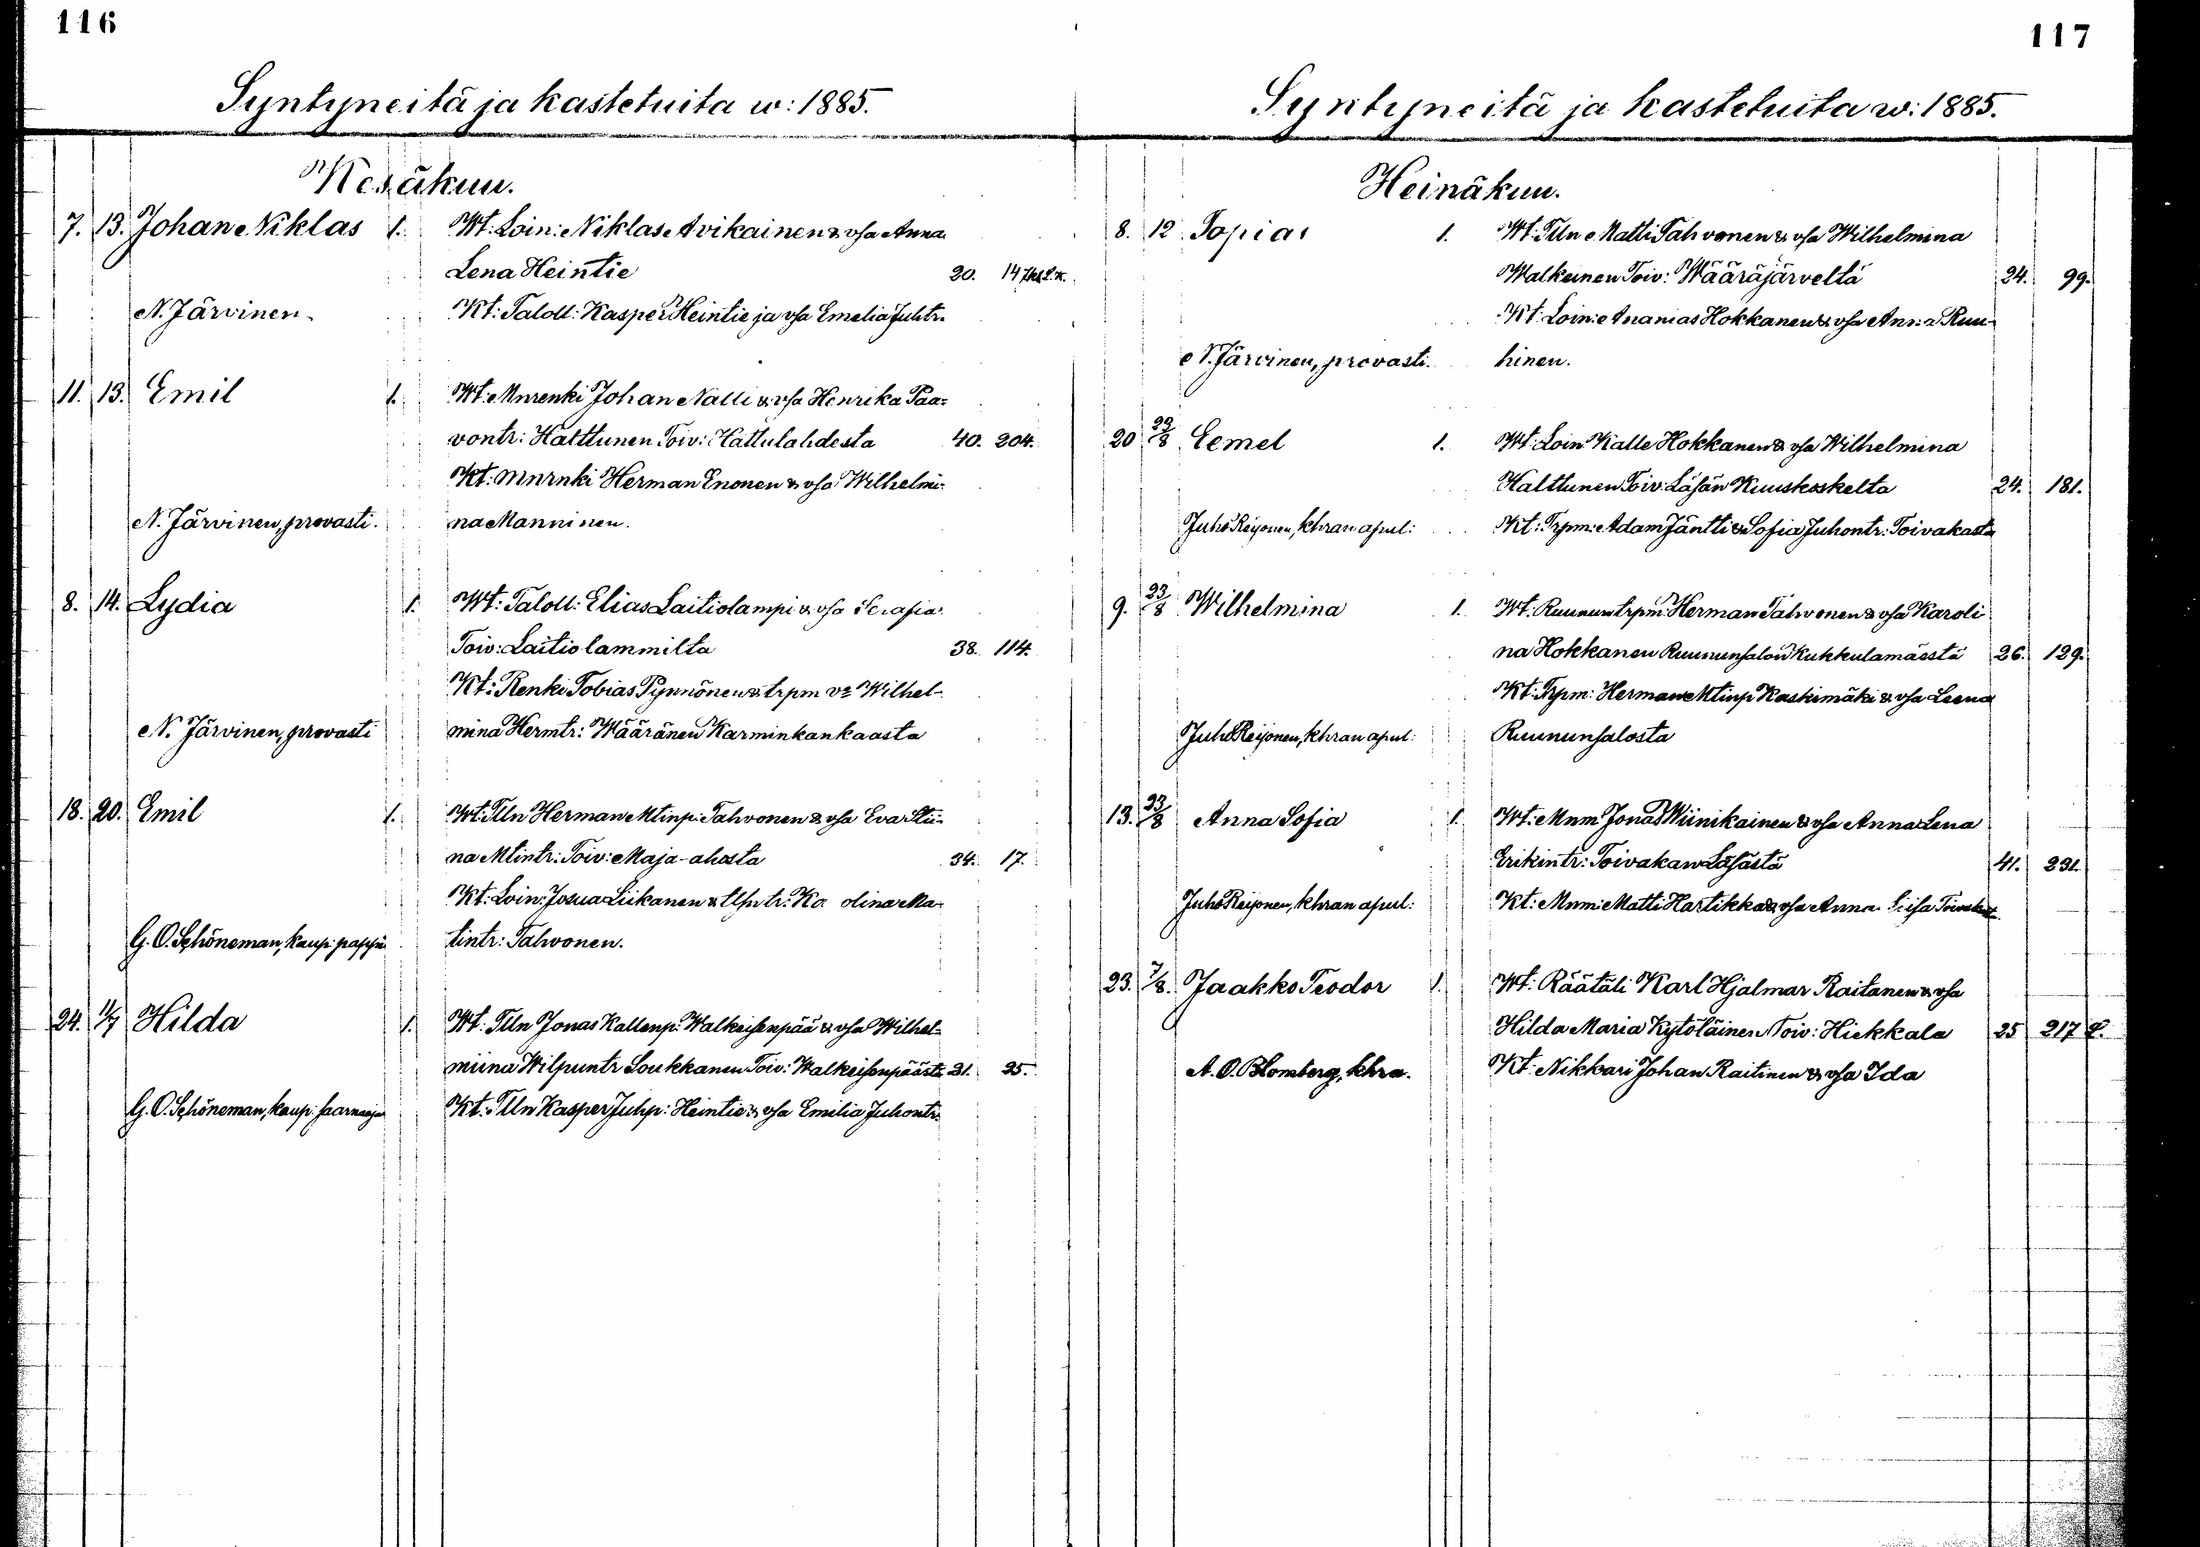 116
Syntyneitä ja kastetuita w: 1885.
Kesäkuu.
7. 13. Johan Niklas 1. Wt: Loin: Niklas Avikainen & vsa Anna
Lena Heintie 20. 147
N. Järvinen. Kt: Taloll: Kasper Heintie ja vsa Emelia Juhtr.
11. 13. Emil 1. Wt: Mnrenki Johan Nalli & vsa Henrika Paa-
vontr: Halttunen Toiv: Hattulahdesta 40. 204.
Kt: Mnrnki Herman Enonen & vsa Wilhelmi-
N. Järvinen, provasti. na Manninen.
8. 14. Lydia 1. Wt: Taloll: Elias Laitiolampi & vsa Serafia
Toiv: Laitiolammilta 38. 114.
Kt: Renki Tobias Pynnönen & trpm vr Wilhel-
N. Järvinen, provasti mina Hermtr: Wääränen Karminkankaasta
18. 20. Emil 1. Wt: Tlln Herman Mtinp: Tahvonen & vsa Eva Stii-
na Mtintr: Toiv: Maja-ahosta 34. 17.
Kt: Loin: Josua Liikanen & tlln tr: Ka olina Ma-
G. O. Schöneman, kaup: pappi tintr: Tahvonen.
24. 11/7 Hilda 1. Wt: Tlln Jonas Kallenp: Walkeisenpää & vsa Wilhel-
miina Wilpuntr Loukkanen Toiv: Walkeisenpäästä 21. 25.
G. O. Schöneman, kaup: saarnaaja Kt: Tlln Kasper Juhp: Heintie & vsa Emilia Juhontr:
117
Syntyneitä ja kastetuita w: 1885.
Heinäkuu.
8. 12 Topias 1. Wt: Tlln Matti Tahvonen & vsa Wilhelmina
Walkeinen Toiv: Wääräjärveltä 24. 99.
Kt: Loin: Ananias Hokkanen & vsa Anna Ruu-
N. Järvinen, provasti. hinen.
20 23/8 Eemel 1. Wt: Loin Kalle Hokkanen & vsa Wilhelmina
Halttunen Toiv: Läsän Kuuskoskelta 24. 181.
Juho Reijonen, khran apul: Kt: Trpm: Adam Jäntti & Sofia Juhontr: Toivakasta
9. 23/8 Wilhelmina 1. Wt: Ruunun trpm: Herman Tahvonen & vsa Karoli-
na Hokkanen Ruununsalon Kukkulamäestä 26. 129.
Kt: Trpm: Herman Mtinp Kaskimäki & vsa Leena
Juho Reijonen, khran apul: Ruununsalosta
13. 23/8 Anna Sofia 1. Wt: Mnm Jonas Wiinikainen & vsa Anna Lena
Erikintr: Toivakan Läsästä 41. 231.
Juho Reijonen, khran apul: Kt: Mnm: Matti Hartikka & vsa Anna Liisa
23. 7/8. Jaakko Teodor 1. Wt: Räätäli Karl Hjalmar Raitanen & vsa
Hilda Maria Kytöläinen Toiv: Hiekkala 25 217 L.
A. O. Blomberg, khra. Kt: Nikkari Johan Raitinen & vsa Ida